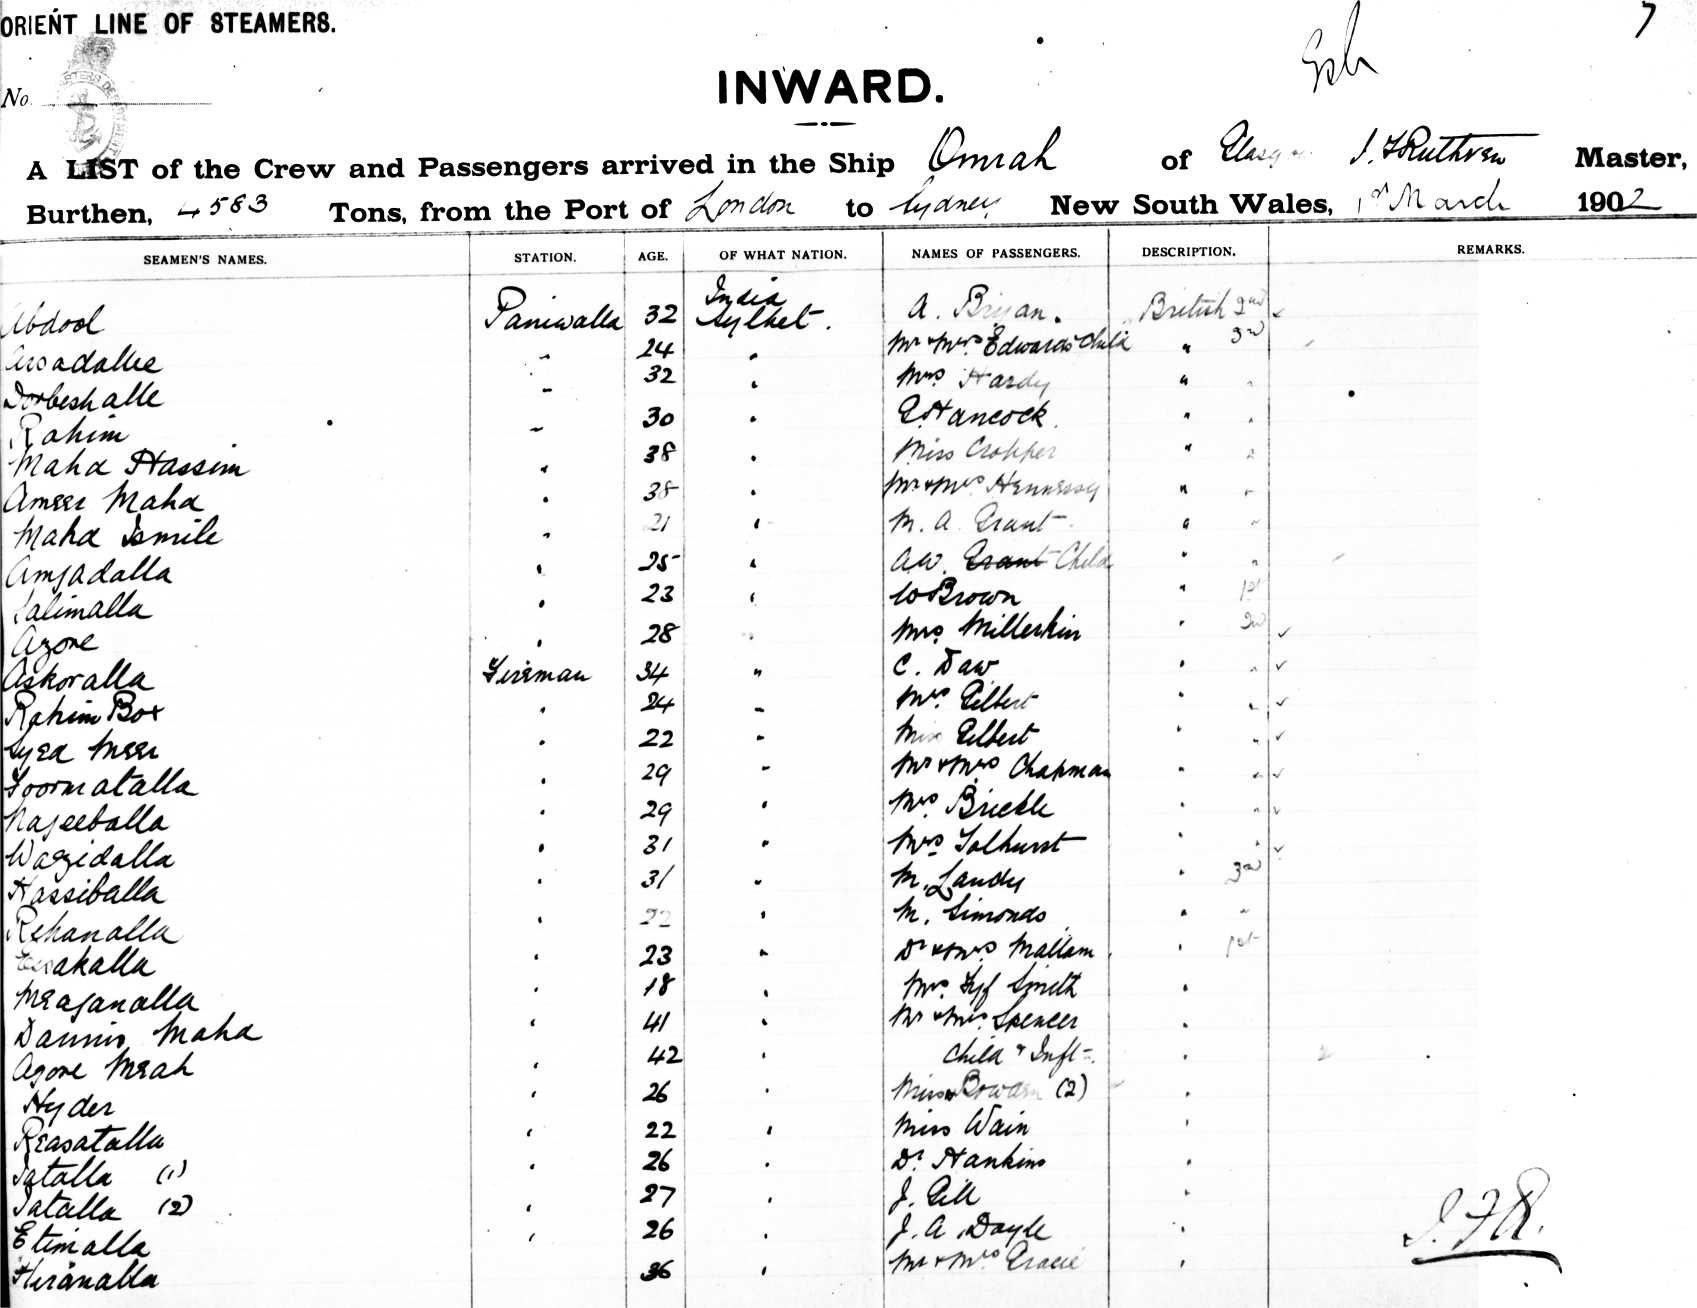 ORIENT LINE OF STEAMERS. 7
No.
INWARD.
A LIST of the Crew and Passengers arrived in the Ship Omrah of Glasgow J. F Ruthven Master,
Burthen, 4583 Tons, from the Port of London to Sydney, New South Wales, 1st March 1902
SEAMEN'S NAMES. STATION. AGE. OF WHAT NATION. NAMES OF PASSENGERS. DESCRIPTION. REMARKS.
Abdool Paniwalla 32 India Sylhet. A. Bryan. British 2nd ✓
Arsadallee " 24 " Mr & Mrs Edwards Child " 3rd
Dorbeshalle " 32 " Mrs Hardy " "
Rahim " 30 " E Hancock. " "
Maha Hassim " 38 " Miss Cropper " "
Ameer Maha " 38 " Mr & Mrs Hennessy " "
Maha Ismile " 21 " M. A. Grant " "
Amjadalla " 25 " A W. Child " "
Salimalla " 23 " W Brown " 1st
Azore " 28 " Mrs Millerkin " 2nd ✓
Askoralla Fireman 34 " C. Daw " " ✓
Rahim Box " 24 " Mrs. Gilbert " " ✓
Syed Meer " 22 " Miss Gilbert " " ✓
Toormatalla " 29 " Mr & Mrs Chapman " " ✓
Najeeballa " 29 " Mrs Brickle " " ✓
Wazidalla " 31 " Mrs Tolhurst " " ✓
Hassiballa " 31 " M. Landy " 3rd
Rehanalla " 22 " M. Simonds " "
akalla " 23 " Dr & Mrs. Mallam " 1st
Meajanalla " 18 " Mrs. Fyf Smith "
Dannis Maha " 41 " Mr & Mrs. Spencer "
Agore Meah " 42 " Child & Inft "
Hyder " 26 " Misses Bowden (2) "
Reasatalla " 22 " Miss Wain "
Satalla (1) " 26 " Dr Hankins "
Satalla (2) " 27 " J. Gill "
Etimalla " 26 " J. A. Doyle " J. F. R.
Hiranalla 36 " Mr & Mrs Gracie "